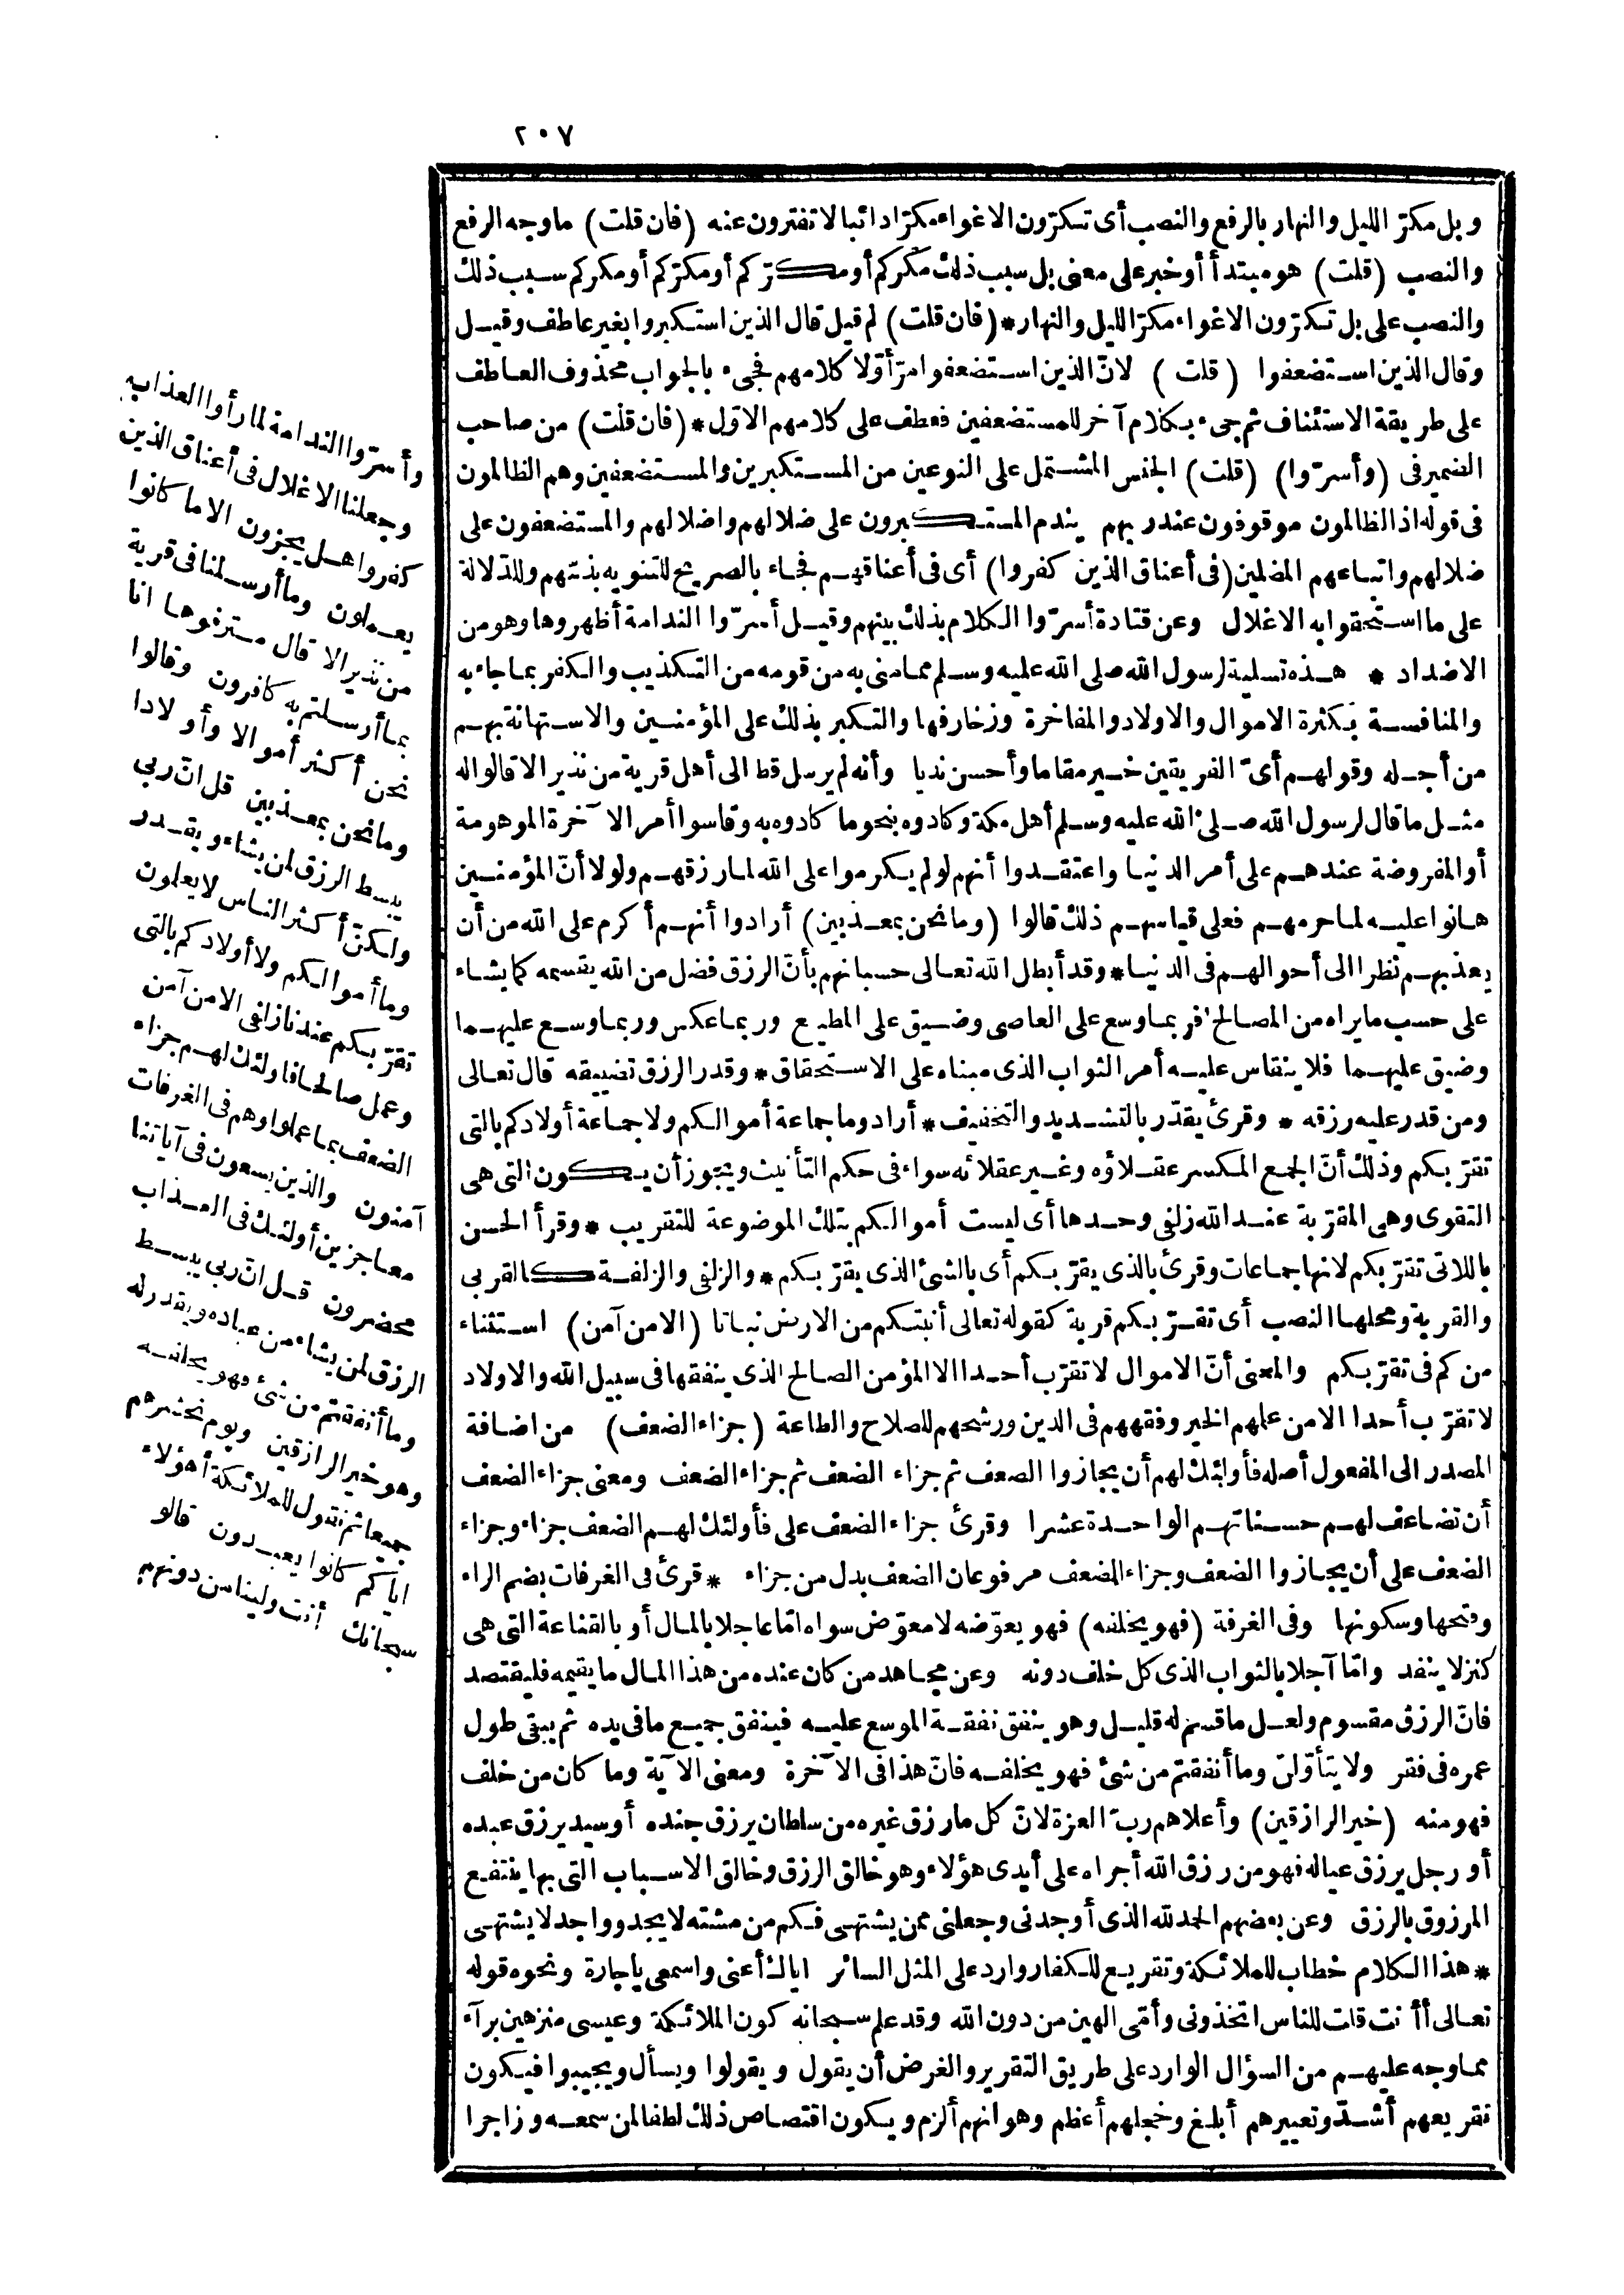 ٢٠٧
وبل مكرّ الليل والنهار بالرفع والنصب أى تسكرّون الاغواء مكرّا دائبا لا تفترون عنه (فان قلت) ما وجه الرفع
والنصب (قلت) هو مبتدأ أو خبر على معنى بل سبب ذلك مكركم أو مكرّكم أو مكرّكم أو مكركم سبب ذلك
والنصب على بل تكرّون الاغواء مكرّ الليل والنهار * (فان قلت) لم قيل قال الذين استكبروا بغير عاطف وقيل
وقال الذين استضعفوا (قلت) لانّ الذين استضعفوا مرّ أوّلا كلامهم فجىء بالجواب محذوف العاطف
على طريقة الاستئناف ثم جىء بكلام آخر للمستضعفين فعطف على كلامهم الاوّل * (فان قلت) من صاحب
الضمير فى (وأسرّوا) (قلت) الجنس المشتمل على النوعين من المستكبرين والمستضعفين وهم الظالمون
فى قوله اذ الظالمون موقوفون عند ربهم يندم المستكبرون على ضلالهم واضلالهم والمستضعفون على
ضلالهم واتباعهم المضلين (فى أعناق الذين كفروا) أى فى أعناقهم فجاء بالصريح للتنويه بذمّهم وللدّلالة
على ما استحقوا به الاغلال وعن قتادة أسرّوا الكلام بذلك بينهم وقيل أسرّوا الندامة أظهروها وهو من
الاضداد * هذه تسلية لرسول الله صلى الله عليه وسلم مما منى به من قومه من التكذيب والكفر بما جاء به
والمنافسة بكثرة الاموال والاولاد والمفاخرة وزخارفها والتكبر بذلك على المؤمنين والاستهانة بهم
من أجله وقولهم أىّ الفريقين خير مقاما وأحسن نديا وأنه لم يرسل قط الى أهل قرية من نذير الا قالوا له
مثل ما قال لرسول الله صلى الله عليه وسلم أهل مكة وكادوه بنحو ما كادوه به وقاسوا أمر الآخرة الموهومة
أو المفروضة عندهم على أمر الدنيا واعتقدوا أنهم لو لم يكرموا على الله لما رزقهم ولولا أنّ المؤمنين
هانوا عليه لما حرمهم فعلى قياسهم ذلك قالوا (وما نحن بمعذبين) أرادوا أنهم أكرم على الله من أن
يعذبهم نظرا الى أحوالهم فى الدنيا * وقد أبطل الله تعالى حسبانهم بأنّ الرزق فضل من الله يقسمه كما يشاء
على حسب ما يراه من المصالح فربما وسع على العاصى وضيق على المطيع وربما عكس وربما وسع عليهما
وضيق عليهما فلا ينقاس عليه أمر الثواب الذى مبناه على الاستحقاق * وقدر الرزق تضييقه قال تعالى
ومن قدر عليه رزقه * وقرئ يقدّر بالتشديد والتخفيف * أراد وما جماعة أموالكم ولا جماعة أولادكم بالتى
تقرّبكم وذلك أنّ الجمع المكسر عقلاؤه وغير عقلائه سواء فى حكم التأنيث ويجوز أن يكون التى هى
التقوى وهى المقرّبة عند الله زلفى وحدها أى ليست أموالكم بتلك الموضوعة للتقريب * وقرأ الحسن
باللاتى تقرّبكم لانها جماعات وقرئ بالذى يقرّبكم أى بالشئ الذى يقرّبكم * والزلفى والزلفة كالقربى
والقربة ومحلها النصب أى تقرّبكم قربة كقوله تعالى أنبتكم من الارض نباتا (الا من آمن) استثناء
من كم فى تقرّبكم والمعنى أنّ الاموال لا تقرّب أحدا الا المؤمن الصالح الذى ينفقها فى سبيل الله والاولاد
لا تقرّب أحدا الا من علمهم الخير وفقههم فى الدين ورشحهم للصلاح والطاعة (جزاء الضعف) من اضافة
المصدر الى المفعول أصله فأولئك لهم أن يجازوا الضعف ثم جزاء الضعف ثم جزاء الضعف ومعنى جزاء الضعف
أن تضاعف لهم حسناتهم الواحدة عشرا وقرئ جزاء الضعف على فأولئك لهم الضعف جزاء وجزاء
الضعف على أن يجازوا الضعف وجزاء الضعف مرفوعان الضعف بدل من جزاء * قرئ فى الغرفات بضم الراء
وفتحها وسكونها وفى الغرفة (فهو يخلفه) فهو يعوّضه لا معوّض سواه امّا عاجلا بالمال أو بالقناعة التى هى
كنز لا ينفد وامّا آجلا بالثواب الذى كل خلف دونه وعن مجاهد من كان عنده من هذا المال ما يقيمه فليقتصد
فانّ الرزق مقسوم ولعل ما قسم له قليل وهو ينفق نفقة الموسع عليه فينفق جميع ما فى يده ثم يبقى طول
عمره فى فقر ولا يتأوّلنّ وما أنفقتم من شئ فهو يخلفه فانّ هذا فى الآخرة ومعنى الآية وما كان من خلف
فهو منه (خير الرازقين) وأعلاهم ربّ العزة لانّ كل ما رزق غيره من سلطان يرزق جنده أو سيد يرزق عبده
أو رجل يرزق عياله فهو من رزق الله أجراه على أيدى هؤلاء وهو خالق الرزق وخالق الاسباب التى بها ينتفع
المرزوق بالرزق وعن بعضهم الحمد لله الذى أوجدنى وجعلنى ممن يشتهى فكم من مشته لا يجد وواجد لا يشتهى
* هذا الكلام خطاب للملائكة وتقريع للكفار وارد على المثل السائر اياك أعنى واسمعى يا جارة ونحوه قوله
تعالى أأنت قلت للناس اتخذونى وأمّى الهين من دون الله وقد علم سبحانه كون الملائكة وعيسى منزهين برآء
مما وجه عليهم من السؤال الوارد على طريق التقرير والغرض أن يقول ويقولوا ويسأل ويجيبوا فيكون
تقريعهم أشدّ وتعييرهم أبلغ وخجلهم أعظم وهوانهم ألزم ويكون اقتصاص ذلك لطفا لمن سمعه وزاجرا
وأسرّوا الندامة لما رأوا العذاب
وجعلنا الاغلال فى أعناق الذين
كفروا هل يجزون الا ما كانوا
يعملون وما أرسلنا فى قرية
من نذير الا قال مترفوها انا
بما أرسلتم به كافرون وقالوا
نحن أكثر أموالا وأولادا
وما نحن بمعذبين قل انّ ربى
يبسط الرزق لمن يشاء ويقدر
ولكنّ أكثر الناس لا يعلمون
وما أموالكم ولا أولادكم بالتى
تقرّبكم عندنا زلفى الا من آمن
وعمل صالحا فاولئك لهم جزاء
الضعف بما عملوا وهم فى الغرفات
آمنون والذين يسعون فى آياتنا
معاجزين أولئك فى العذاب
محضرون قل انّ ربى يبسط
الرزق لمن يشاء من عباده ويقدر له
وما أنفقتم من شئ فهو يخلفه
وهو خير الرازقين ويوم نحشرهم
جميعا ثم نقول للملائكة أهؤلاء
اياكم كانوا يعبدون قالو
سبحانك أنت ولينا من دونهم